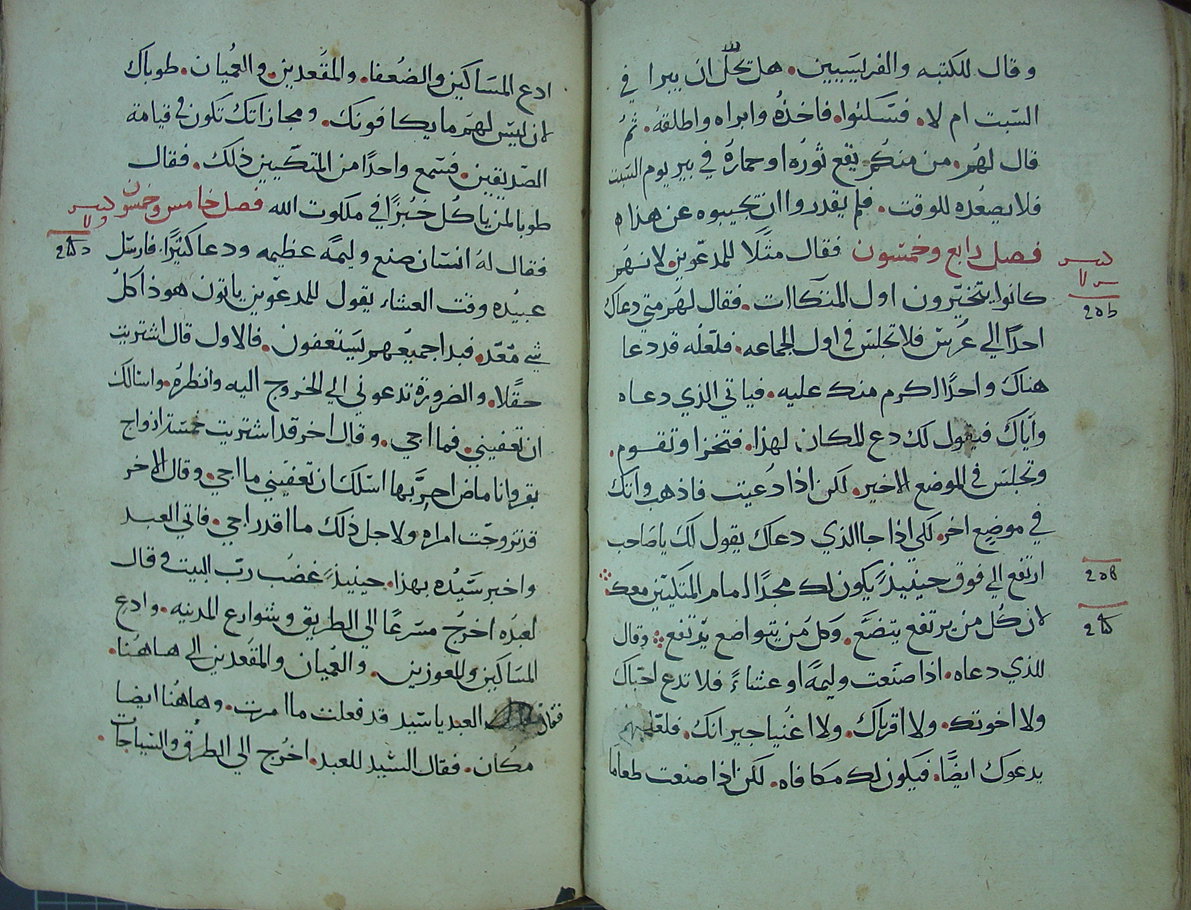 وقال للكتبه والفريسيين. هل تحل ان يبرا في
السبت ام لا. فسكتوا. فاخذه وابراه واطلقه. ثم
قال لهم. من منكم يقع ثوره او حماره في بير يوم السبت
فلا يصعده للوقت. فلم يقدروا ان تجيبوه عن هذا
فصل رابع وخمسون فقال مثلا للمدعوين لانهم
كانوا يتخيرون اول المتكاات. فقال لهم متي دعاك
احدا الي عرس فلا تجلس في اول الجماعه. فلعله قد دعا
هناك واحدا اكرم منك عليه. فياتي الذي دعاه
واياك فيقول لك دع المكان لهذا. فتخزا وتقوم.
وتجلس في الموضع الاخير. لكن اذا دعيت فاذهب واتك
في موضع اخر. لكي اذا جا الذي دعاك يقول لك يا صاحب
ارتفع الي فوق حينيذ يكون لك مجدا امام المتكيين معك
لان كل من يرتفع يتضع. وكل من يتواضع يرتفع. وقال
للذي دعاه. اذا صنعت وليمه او عشاء فلا تدع احباك
ولا اخوتك. ولا اقرباك. ولا اغنيا جيرانك. فلعلهم
يدعوك ايضا. فيكون لك مكافاه. لكن اذا صنعت طعاما
ادع المساكين والضعفا. والمقعدين. والعميان. طوباك
لان ليس لهم ما يكافونك. ومجازاتك تكون في قيامة
الصديقين. فسمع واحدا من المتكيين ذلك. فقال
طوبا لمن ياكل خبزا في ملكوت الله فصل خامس وخمسون
فقال له انسان صنع وليمه عظيمه ودعا كثيرا. فارسل
عبيده وقت العشاء يقول للمدعوين ياتون هوذا كل
شي معد. فبدا جميعهم يستعفون. فالاول قال اشتريت
حقلا. والضرورة تدعوني الي الخروج اليه وانظره. واسالك
ان تعفيني. فما اجي. وقال اخر قد اشتريت خمسة ازواج
بقر وانا ماض اجربها اسلك ان تعفيني ما اجي. وقال الاخر
قد تزوجت امراه ولاجل ذلك ما اقدر اجي. فاتي العبد
واخبر سيده بهذا. حينيذ غضب رب البيت وقال
لعبده اخرج مسرعا الي الطريق وشوارع المدينه. وادع
المساكين والمعوزين. والعميان والمقعدين الي هاهنا.
فقال العبد يا سيد قد فعلت ما امرت. وهاهنا ايضا
مكان. فقال السيد للعبد. اخرج الي الطرق والسياجات